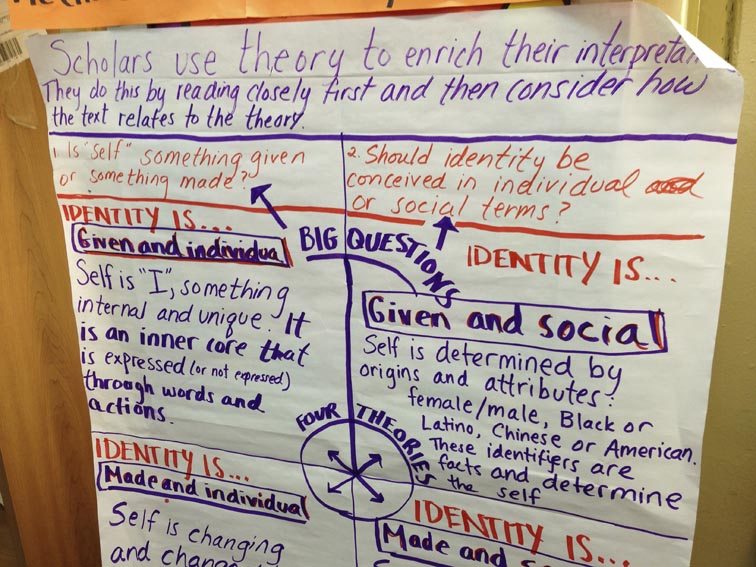 Scholars use theory to enrich their
They do this by reading closely first and then consider how
the text relates to the theory.
1. Is "self" something given
or something made?
2. Should identity be
conceived in individual
or social terms?
BIG QUESTIONS
IDENTITY IS...
Given and individual
Self is "I", something
internal and unique. It
is an inner core that
is expressed (or not expressed)
through words and
actions.
IDENTITY IS...
Given and social
Self is determined by
origins and attributes:
female/male, Black or
Latino, Chinese or American.
These identifiers are
facts and determine
the self
FOUR THEORIES
IDENTITY IS...
Made and individual
Self is changing
and
IDENTITY IS...
Made and